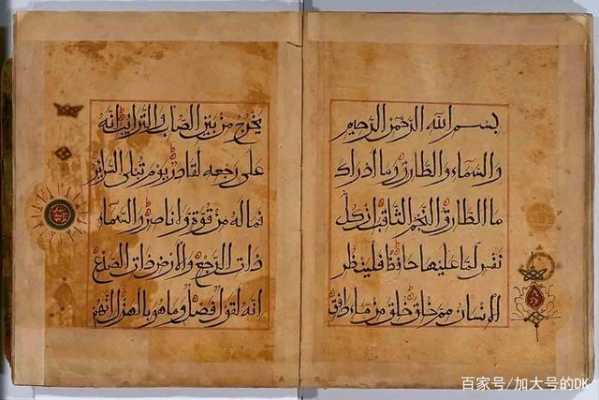 بسم الله الرحمن الرحيم
والسماء والطارق وما أدراك
ما الطارق النجم الثاقب إن كل
نفس لما عليها حافظ فلينظر
الإنسان مم خلق خلق من ماء دافق
يخرج من بين الصلب والترائب إنه
على رجعه لقادر يوم تبلى السرائر
فما له من قوة ولا ناصر والسماء
ذات الرجع والأرض ذات الصدع
إنه لقول فصل وما هو بالهزل إنهم
百家号/加大号的DK